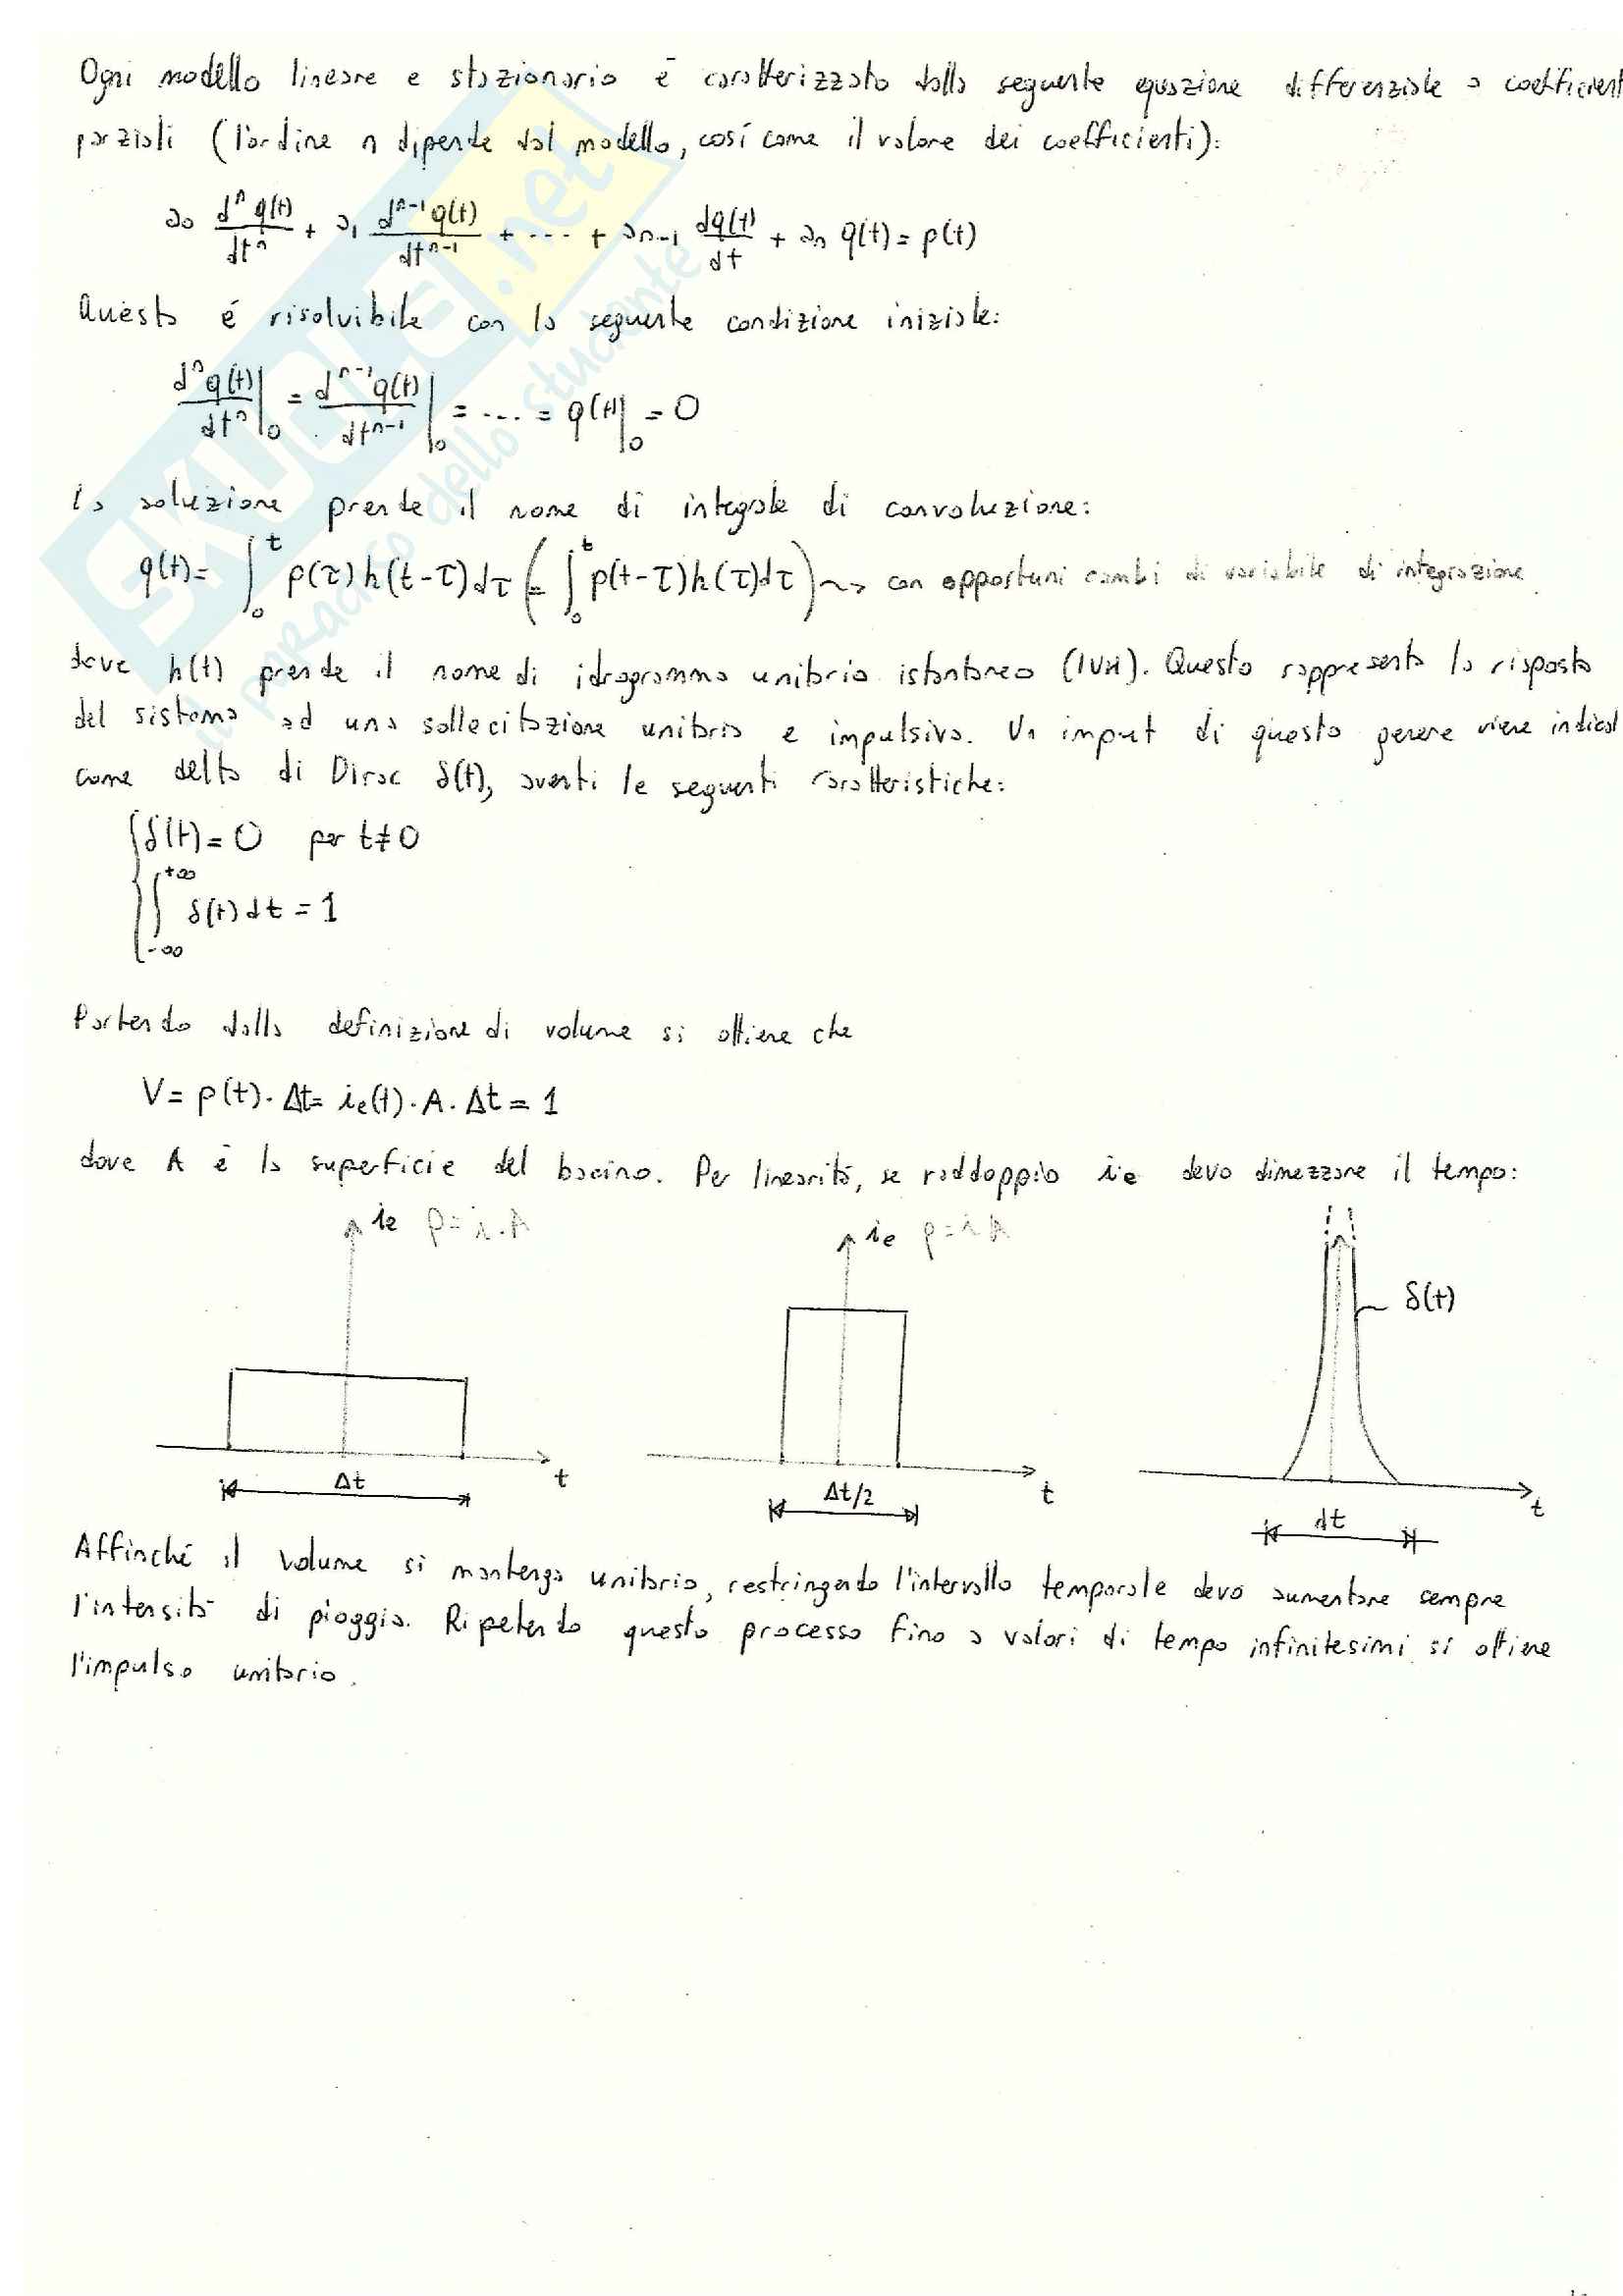 Ogni modello lineare e stazionario è caratterizzato dalla seguente equazione differenziale a coefficient
parziali (l'ordine n dipende dal modello, così come il valore dei coefficienti):
a₀ dⁿq(t)/dtⁿ + a₁ dⁿ⁻¹q(t)/dtⁿ⁻¹ + ---- + aₙ₋₁ dq(t)/dt + aₙ q(t) = p(t)
Questa é risolvibile con la seguente condizione iniziale:
dⁿq(t)/dtⁿ|₀ = dⁿ⁻¹q(t)/dtⁿ⁻¹|₀ = --- = q(t)|₀ = 0
La soluzione prende il nome di integrale di convoluzione:
q(t) = ∫₀ᵗ p(τ)h(t-τ)dτ (= ∫₀ᵗ p(t-τ)h(τ)dτ) ⤳ con opportuni cambi di variabile di integrazione
dove h(t) prende il nome di idrogramma unitario istantaneo (IUH). Questo rappresenta la risposta
del sistema ad una sollecitazione unitaria e impulsiva. Un input di questo genere viene indicat
come delta di Dirac δ(t), aventi le seguenti caratteristiche:
{ δ(t) = 0 per t≠0
∫₋∞⁺∞ δ(t)dt = 1
Partendo dalla definizione di volume si ottiene che
V = p(t)· Δt = ie(t)· A · Δt = 1
dove A è la superficie del bacino. Per linearità, se raddoppio ie devo dimezzare il tempo:
ie p=i.A
ie p=i A
δ(t)
Δt t
Δt/2 t
dt t
Affinché il volume si mantenga unitario, restringendo l'intervallo temporale devo aumentare sempre
l'intensità di pioggia. Ripetendo questo processo fino a valori di tempo infinitesimi si ottiene
l'impulso unitario.
SKUOLA.net
il paradiso dello studente